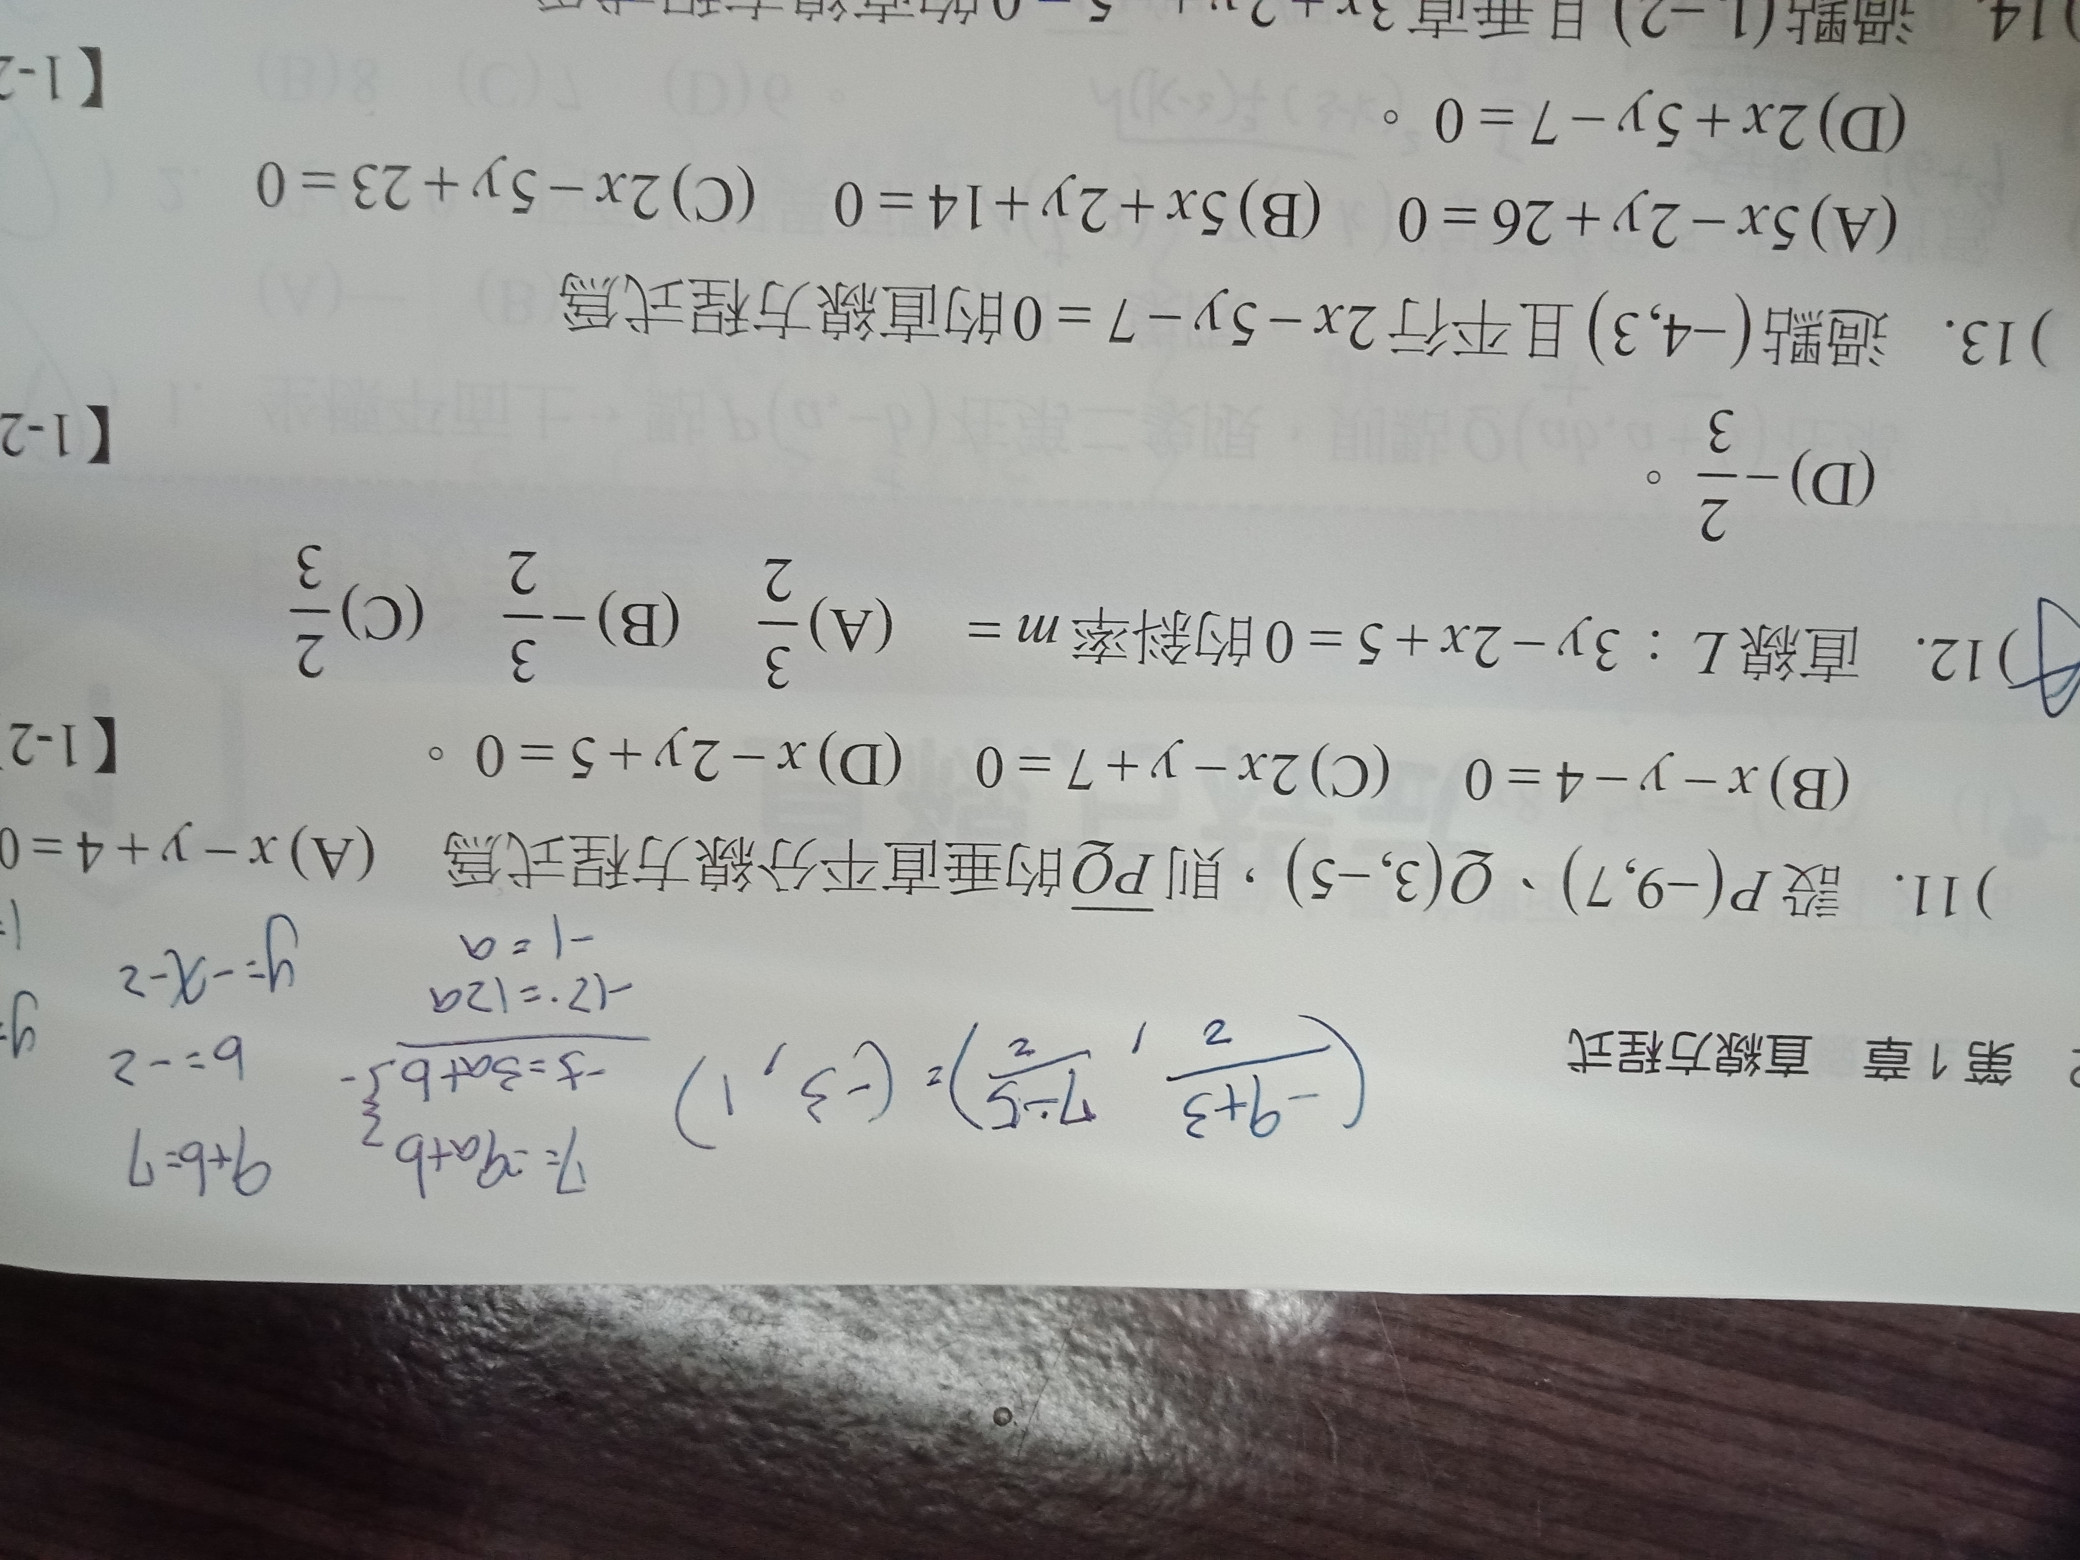 (-9+3/2, 7-5/2) = (-3, 1)
7=-9a+b
-5=3a+b
-12=12a
-1=a
9+b=7
b=-2
y=-x-2
第1章 直線方程式
)11. 設P(−9,7)、Q(3,−5),則PQ的垂直平分線方程式為 (A)x−y+4=0
(B)x−y−4=0 (C)2x−y+7=0 (D)x−2y+5=0。 【1-2
)12. 直線L:3y−2x+5=0的斜率m= (A)3/2 (B)−3/2 (C)2/3
(D)−2/3。 【1-2
)13. 過點(−4,3)且平行2x−5y−7=0的直線方程式為
(A)5x−2y+26=0 (B)5x+2y+14=0 (C)2x−5y+23=0
(D)2x+5y−7=0。 【1-2
)14. 過點(1,−2)且垂直3x+2y+5=0的直線方程式為